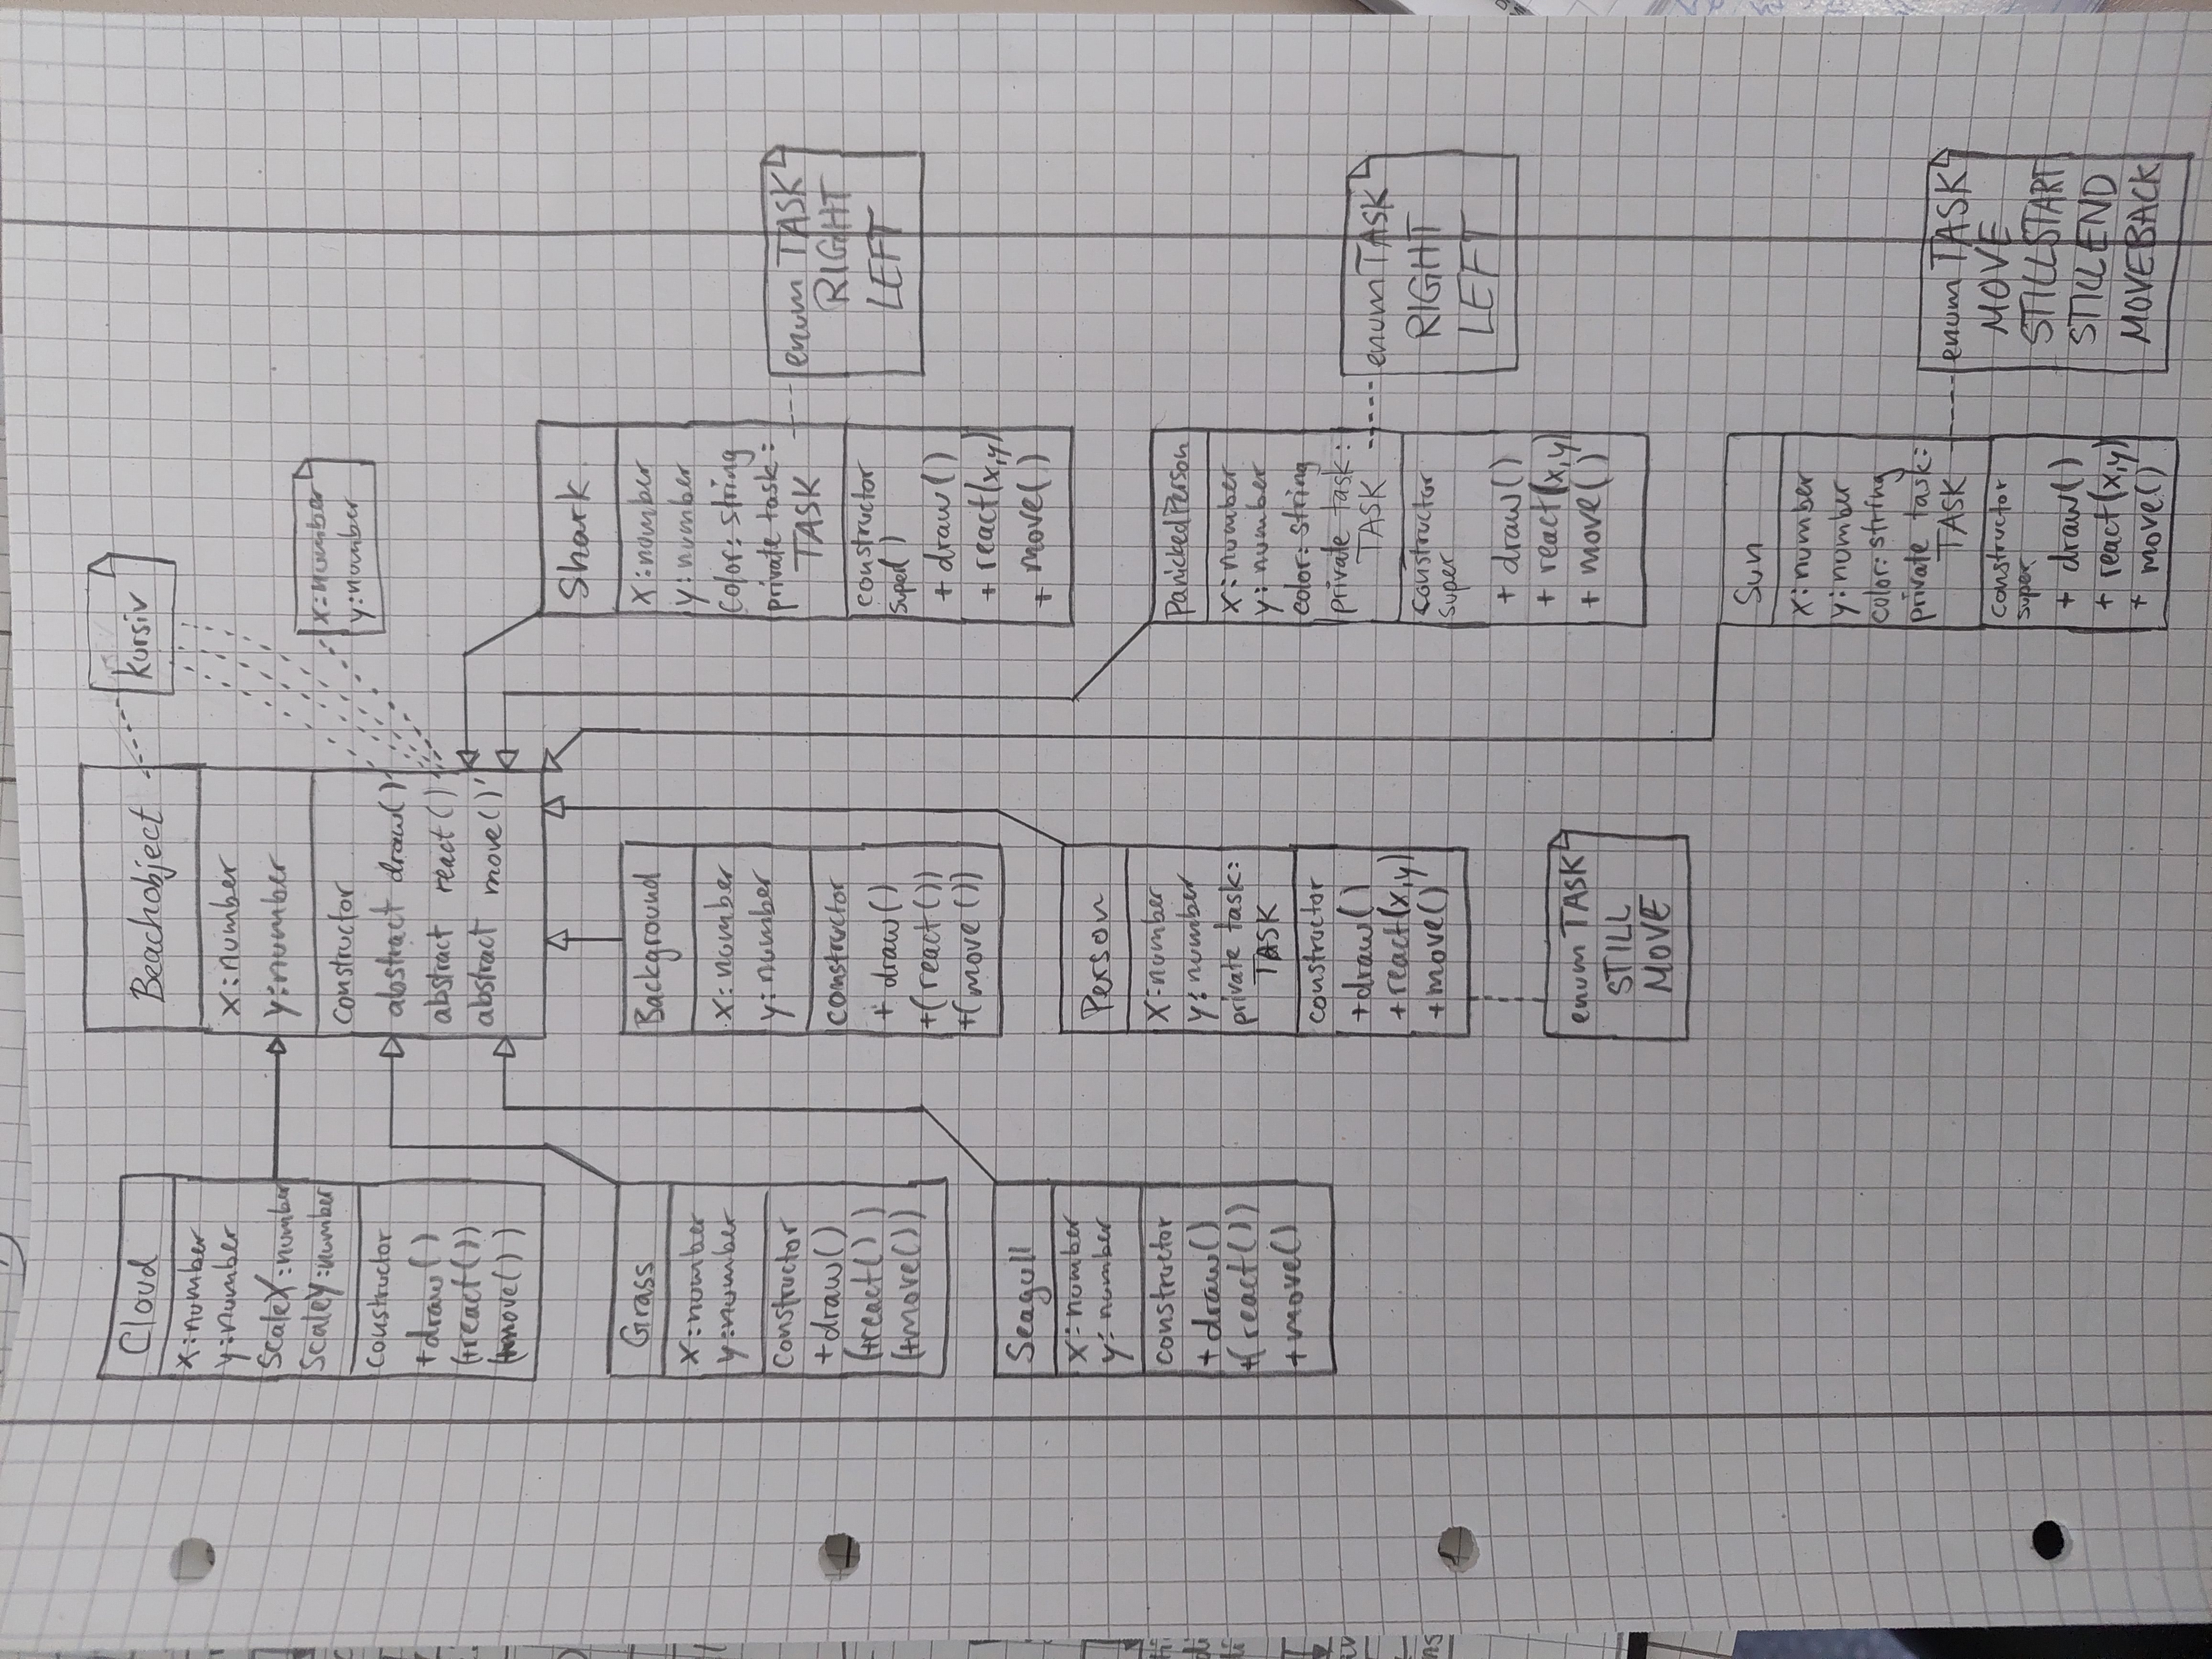 Cloud
x:number
y:number
ScaleX:number
ScaleY:number
constructor
+draw()
(+react())
(+move())
Beachobject
x:number
y:number
constructor
abstract draw()
abstract react()
abstract move()
kursiv
x:number
y:number
Grass
x:number
y:number
constructor
+draw()
(+react())
(+move())
Background
x:number
y:number
constructor
+ draw()
+(react())
+(move())
Shark
x:number
y:number
color: string
private task:
TASK
constructor
super()
+ draw()
+ react(x,y)
+ move()
enum TASK
RIGHT
LEFT
Seagull
x:number
y:number
constructor
+draw()
+(react())
+move()
Person
x:number
y:number
private task:
TASK
constructor
+draw()
+react(x,y)
+move()
enum TASK
STILL
MOVE
PanickedPerson
x:number
y:number
color: string
private task:
TASK
constructor
super
+ draw()
+ react(x,y)
+ move()
enum TASK
RIGHT
LEFT
Sun
x:number
y:number
color: string
private task:
TASK
constructor
super
+ draw()
+ react(x,y)
+ move()
enum TASK
MOVE
STILLSTART
STILLEND
MOVEBACK